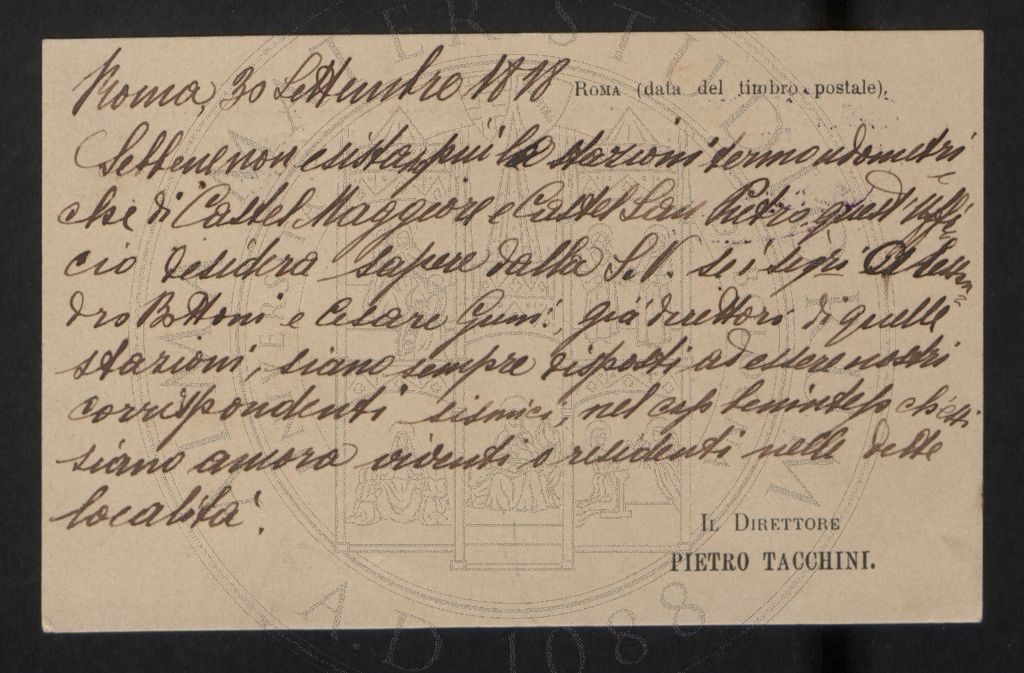 Roma, 30 Settembre 1898 ROMA (data del timbro postale).
Sebbene non esistan più le stazioni termoudometri
che di Castel Maggiore e Castel San Pietro, quest'Uffi
cio desidera sapere dalla S.V. se i sigri Alessan
dro Bottoni e Cesare già direttori di quelle
stazioni, siano sempre disposti ad essere nostri
corrispondenti sismici, nel caso beninteso ch'essi
siano ancora viventi o residenti nelle dette
località.
IL DIRETTORE
PIETRO TACCHINI.
ALMA MATER STUDIORUM
A.D. 1088